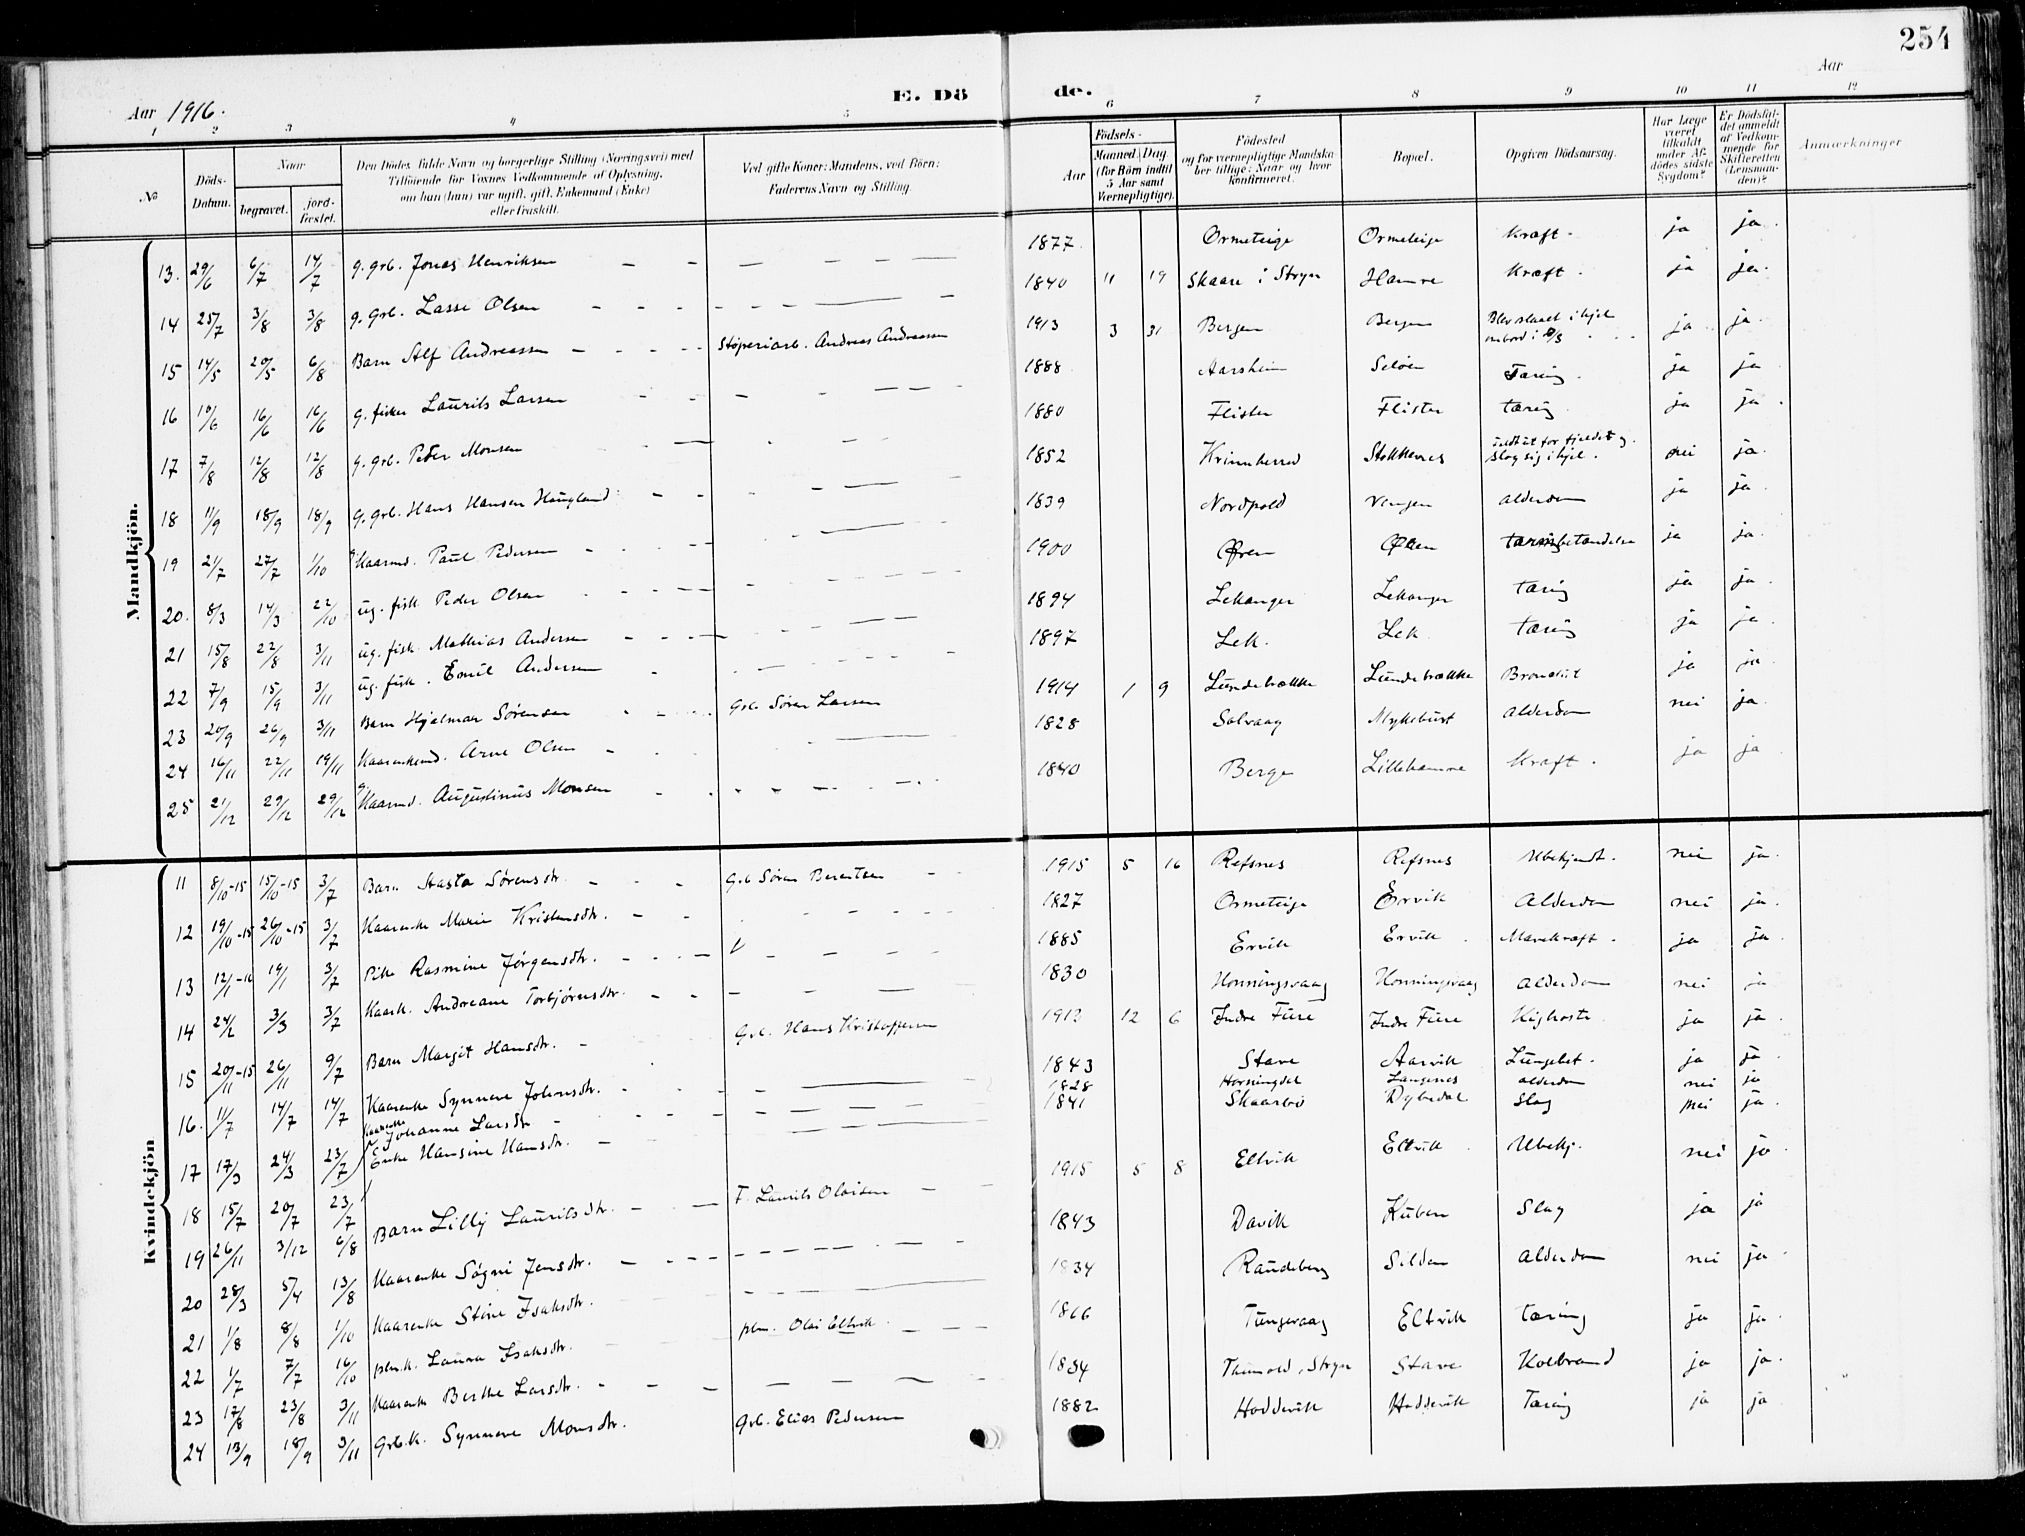 254
Aar 1916.
E. Dö
de.
Aar
1 2 3 4 5 6 7 8 9 10 11 12
№
Döds-Datum.
Naar
begravet.
jord-fæstet.
Den Dödes fulde Navn og borgerlige Stilling (Næringsvei) med
Tilföiende for Voxnes Vedkommende af Oplysning,
om han (hun) var ugift, gift, Enkemand (Enke)
eller fraskilt.
Ved gifte Koner: Mandens, ved Börn:
Faderens Navn og Stilling.
Födsels-
Aar
Maaned. Dag
(for Börn indtil
5 Aar samt
Værnepligtige).
Födested
og for værnepligtige Mandska-
ber tillige: Naar og hvor
konfirmeret.
Bopæl.
Opgiven Dödsaarsag.
Har Læge
været
tilkaldt
under Af-
dödes sidste
Sygdom?
Er Dödsfal-
det anmeldt
af Vedkom-
mende for
Skifteretten
(Lensman-
den)?
Anmærkninger
Mandkjön.
13. 29/6 6/7 14/7 g. grb. Jonas Henriksen 1877 Ormeteige Ormeteige Kræft. ja ja.
14 25/7 3/8 3/8 g. grb. Lasse Olsen 1840 11 19 Skaare i Stryn Hamre Kræft. ja ja.
15 14/5 20/5 6/8 Barn Alf Andreassen Støperiarb. Andreas Andreassen 1913 3 31 Bergen Bergen Blev slaaet ihjel ombord i D/S ja ja.
16 10/6 16/6 16/6 g. fisker Laurits Larsen 1888 Aarsheim Seløen Tæring. ja ja
17 7/8 12/8 12/8 g. grb. Peder Monsen 1880 Flister Flister tæring ja ja.
18 11/9 18/9 18/9 g. grb. Hans Hansen Haugland 1852 Kvinnherred Stokkevæg faldt ut for fjeldet og slog sig ihjel. nei ja.
19 21/7 27/7 1/10 Kaarmd. Paul Pedersen 1839 Nordpold Vengen alderdom ja ja.
20. 8/3 14/3 22/10 ug. fisk. Peder Olsen 1900 Øren Øren tarmbetændelse ja ja.
21 15/8 22/8 3/11 ug. fisk. Mathias Andersen 1894 Lekanger Lekanger tæring ja ja.
22 7/9 15/9 3/11 ug. fisk. Emil Andersen 1897 Lek. Lek. Tæring ja ja.
23 20/9 26/9 3/11 Barn Hjalmar Sørensen Grb. Søren Larsen 1914 1 9 Lundebrække Lundebrække Bronchit ja ja.
24 16/11 22/11 19/11 Kaarenkemd. Arne Olsen 1828 Salvaag Myklebust Alderdom nei ja.
25 21/12 29/12 29/12 g. Kaarmd. Augustinus Monsen 1840 Berge Lillehamre Kræft. ja ja
Kvindekjön
11 8/10-15 15/10-15 3/7 Barn Aasta Sørensdtr. Grb. Søren Berentsen 1915 5 16 Refsnes Refsnes Ubekjendt. nei ja.
12 19/10-15 26/10-15 3/7 Kaarenke Marie Kristensdtr. 1827 Ormeteige Ervik Alderdom nei ja.
13 12/1-16 19/1 3/7 Pike Rasmine Jørgensdtr. 1885 Ervik Ervik Mavekræft. ja ja.
14 24/2 3/3 3/7 Kaark. Andreane Torbjørnsdtr. 1830 Honningsvaag Honningsvaag alderdom nei ja
15 20/11-15 26/11 9/7 Barn Margit Hansdtr. Grb. Hans Kristoffersen 1913 12 6 Indre Fure Indre Fure Kighoste ja ja.
16. 11/7 14/7 14/7 Kaarenke Synneve Johnsdtr. 1843 Stave Aarvik Lungebet. ja ja
17 17/3 24/3 23/7 Kaarenke Johanne Larsdtr. 1828 Hornindal Langenes alderdom nei ja
18 15/7 20/7 23/7 Enke Hansine Hansdtr. 1841 Skaarbø Dybedal Slag nei ja.
19 26/11 3/12 6/8 Barn Lilly Lauritsdtr. F. Laurits Olaisen 1915 5 8 Eltvik Eltvik Ubekj. nei ja.
20 28/3 5/4 13/8 Kaarenke Søgni Jensdtr. 1843 Davik Kuben Slag ja ja
21 1/8 8/8 1/10 Kaarenke Stine Isaksdtr. 1834 Raudeberg Silden Alderdom nei ja.
22 1/7 7/7 16/10 plm.k. Laura Isaksdtr. plm. Olai Eltvik 1866 Tungevaag Eltvik tæring ja ja.
23 17/8 23/8 3/11 Kaarenke Berthe Larsdtr. 1834 Stryn Stave Kolbrand ja ja.
24 13/9 18/9 3/11 Grb.k. Synneve Monsdtr. Grb. Elias Pedersen 1882 Hoddevik Hoddevik Tæring ja ja